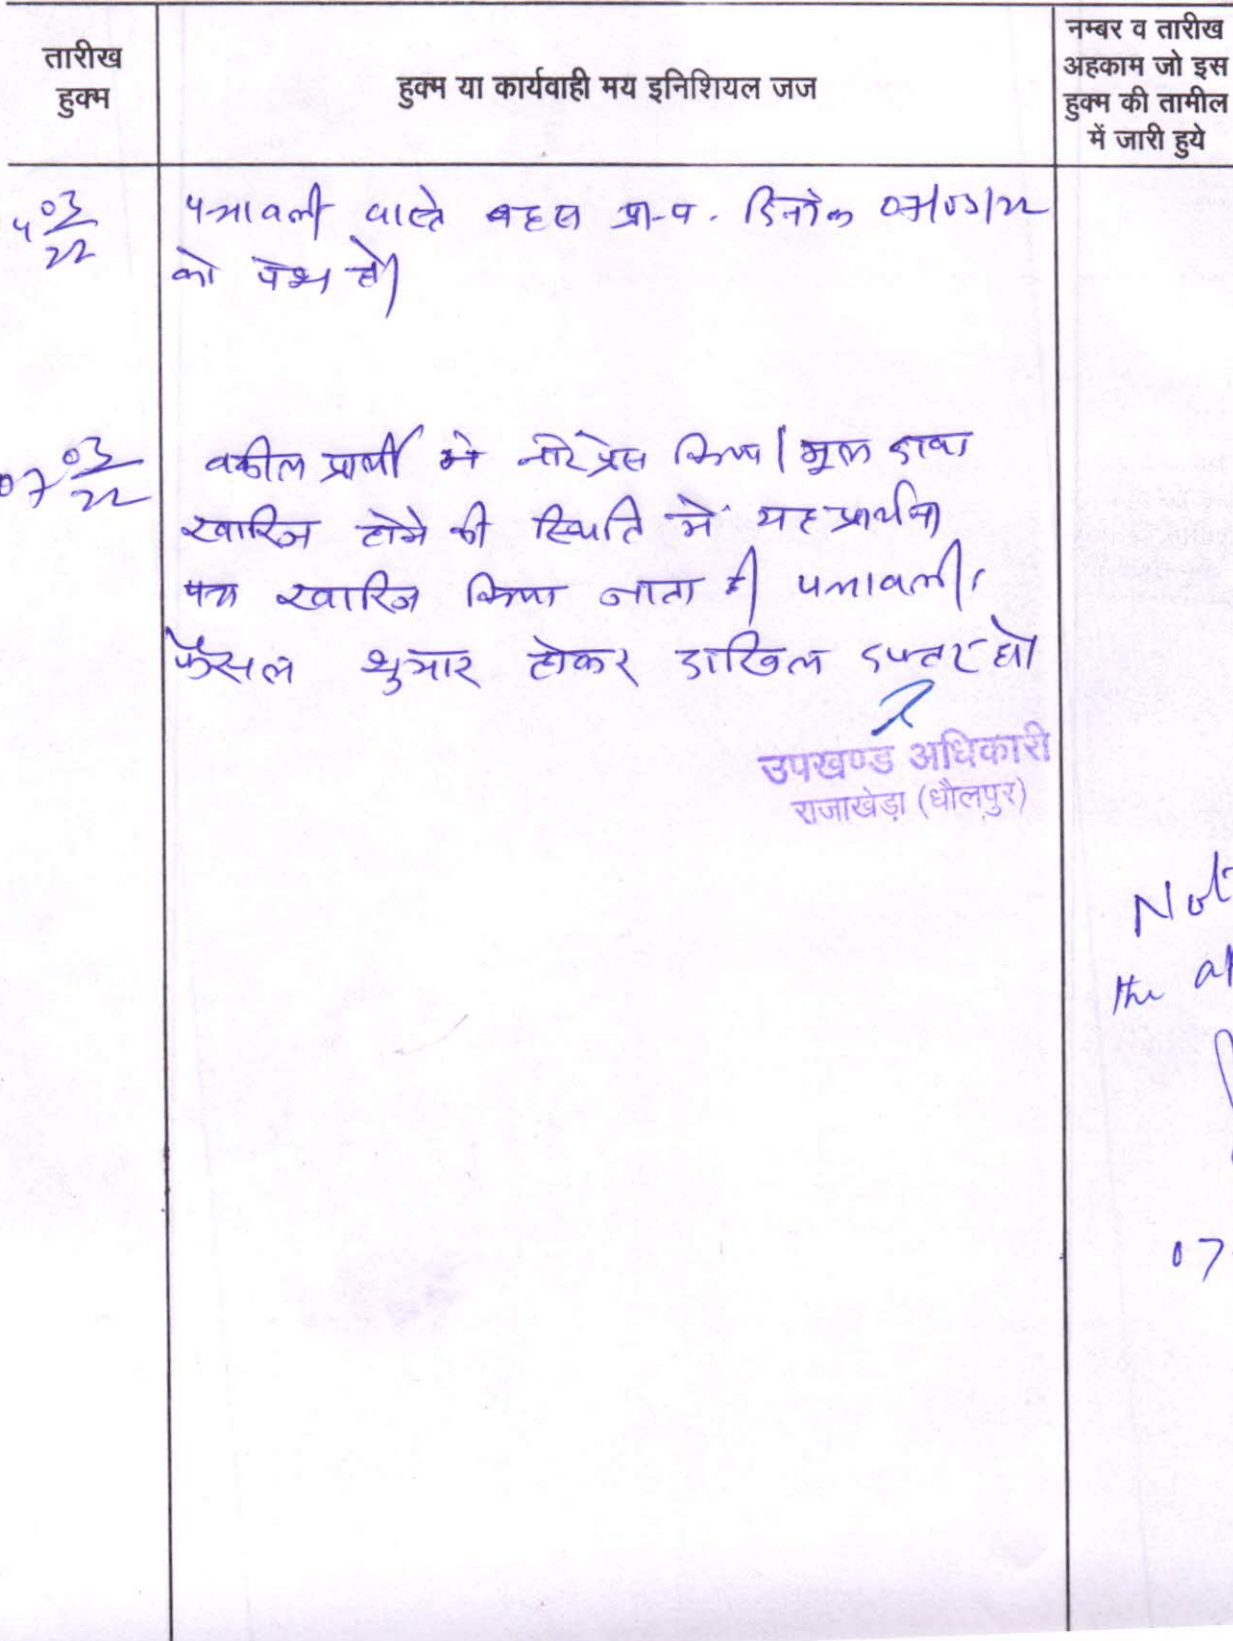 तारीख
हुक्म
हुक्म या कार्यवाही मय इनिशियल जज
नम्बर व तारीख
अहकाम जो इस
हुक्म की तामील
में जारी हुये
03
22
पत्रावली वास्ते बहस प्रा-प. दिनांक 07/03/22
को पेश हो।
07 03
22
वकील प्रार्थी ने नोट प्रेस किया। मूल दावा
खारिज होने की स्थिति में यह प्रार्थना
पत्र खारिज किया जाता है। पत्रावली
फैसल शुमार होकर दाखिल दफ्तर हो।
उपखण्ड अधिकारी
राजाखेड़ा (धौलपुर)
Not
the
07